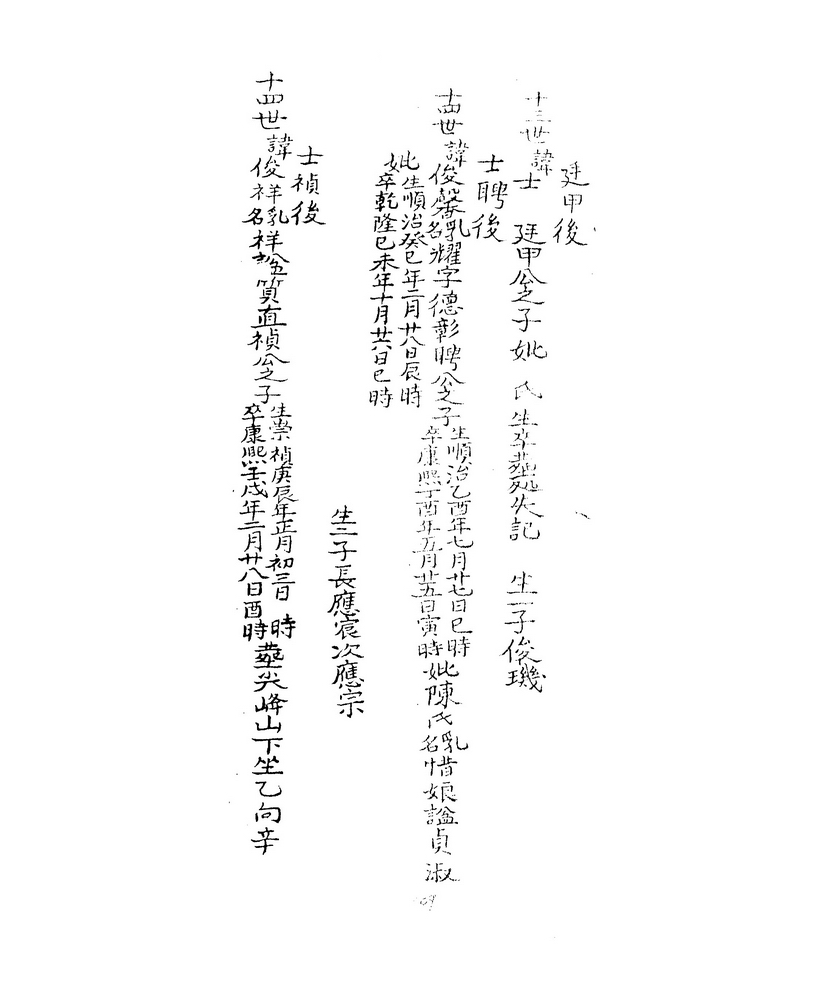 廷甲後
十三世諱士 廷甲公之子妣 氏生卒葬處失記 生一子俊璣
士聘後
十四世諱俊馨乳名耀字德彰聘公之子生順治乙酉年七月廿七日巳時卒康熙丁酉年五月廿五日寅時妣陳氏乳名惜娘謚貞淑
妣生順治癸巳年二月廿八日辰時
妣卒乾隆己未年十月廿六日巳時
生二子長應宸次應宗
士禎後
十四世諱俊祥乳名祥謚質直禎公之子生崇禎庚辰年正月初三日 時卒康熙壬戌年二月廿八日酉時葬尖峰山下坐乙向辛